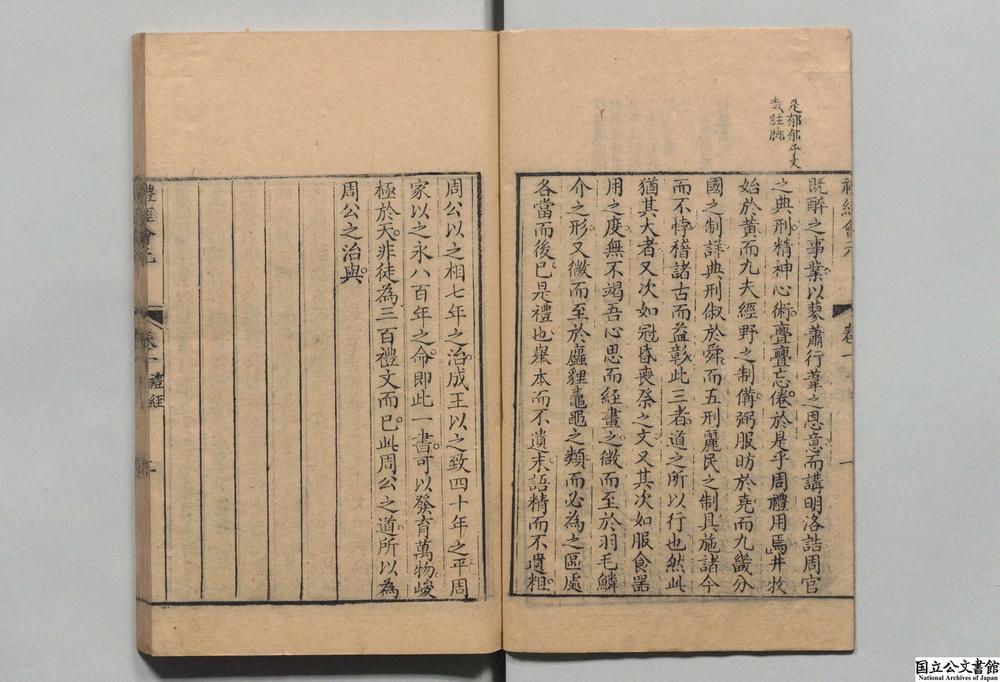 是郁郁乎文
哉註脚
既醉之事業以蓼蕭行葦之恩意而講明洛誥周官
之典刑精神心術亹亹忘倦於是乎周禮用焉井牧
始於黃而九夫經野之制備弼服昉於堯而九畿分
國之制詳典刑俶於舜而五刑麗民之制具施諸今
而不悖稽諸古而益彰此三者道之所以行也然此
猶其大者又次如冠昏喪祭之文又其次如服食器
用之度無不竭吾心思而經畫之微而至於羽毛鱗
介之形又微而至於蠯貍鼃黽之類而必為之區處
各當而後已是禮也舉本而不遺末語精而不遺粗
周公以之相七年之治成王以之致四十年之平周
家以之永八百年之命即此一書可以發育萬物峻
極於天非徒為三百禮文而已此周公之道所以為
周公之治與
禮經會元
卷一
禮經會元
卷一 禮經
国立公文書館
National Archives of Japan